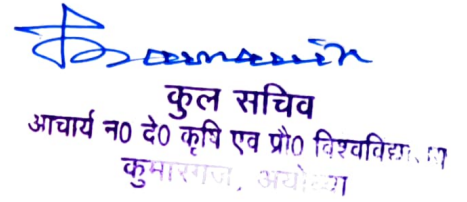 कुल सचिव
आचार्य न0 दे0 कृषि एव प्रौ0 विश्वविद्यालय
कुमारगंज, अयोध्या